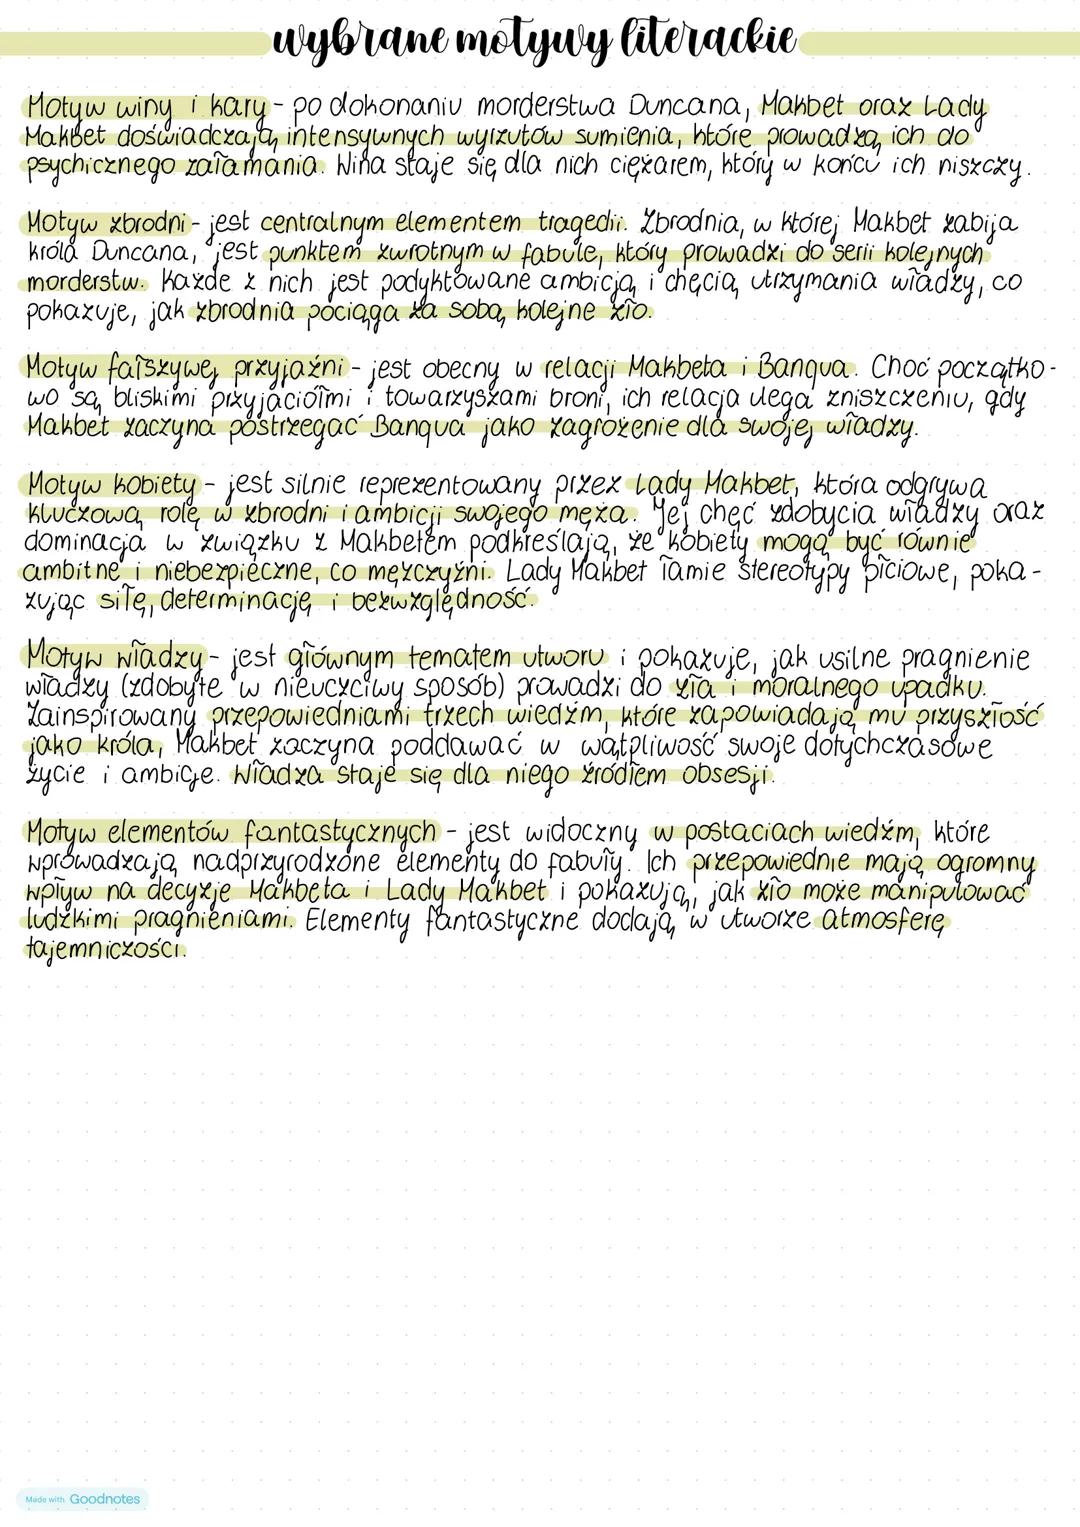 wybrane motywy literackie
Motyw winy i kary - po dokonaniu morderstwa Duncana, Makbet oraz Lady
Makbet doświadczają intensywnych wyrzutów sumienia, które prowadzą ich do
psychicznego załamania. Wina staje się dla nich ciężarem, który w końcu ich niszczy.
Motyw zbrodni - jest centralnym elementem tragedii. Zbrodnia, w której Makbet zabija
króla Duncana, jest punktem zwrotnym w fabule, który prowadzi do serii kolejnych
morderstw. Każde z nich jest podyktowane ambicją i chęcią utrzymania władzy, co
pokazuje, jak zbrodnia pociąga za sobą kolejne zło.
Motyw fałszywej przyjaźni - jest obecny w relacji Makbeta i Banqua. Choć początko-
wo są bliskimi przyjaciółmi i towarzyszami broni, ich relacja ulega zniszczeniu, gdy
Makbet zaczyna postrzegać Banqua jako zagrożenie dla swojej władzy.
Motyw kobiety - jest silnie reprezentowany przez Lady Makbet, która odgrywa
kluczową rolę w zbrodni i ambicji swojego męża. Jej chęć zdobycia władzy oraz
dominacja w związku z Makbetem podkreślają, że kobiety mogą być równie
ambitne i niebezpieczne, co mężczyźni. Lady Makbet łamie stereotypy płciowe, poka-
zując siłę, determinację i bezwzględność.
Motyw władzy - jest głównym tematem utworu i pokazuje, jak usilne pragnienie
władzy (zdobyte w nieuczciwy sposób) prowadzi do zła i moralnego upadku.
Zainspirowany przepowiedniami trzech wiedźm, które zapowiadają mu przyszłość
jako króla, Makbet zaczyna poddawać w wątpliwość swoje dotychczasowe
życie i ambicje. Władza staje się dla niego źródłem obsesji.
Motyw elementów fantastycznych - jest widoczny w postaciach wiedźm, które
wprowadzają nadprzyrodzone elementy do fabuły. Ich przepowiednie mają ogromny
wpływ na decyzje Makbeta i Lady Makbet i pokazują, jak zło może manipulować
ludzkimi pragnieniami. Elementy fantastyczne dodają w utworze atmosferę
tajemniczości.
Made with Goodnotes